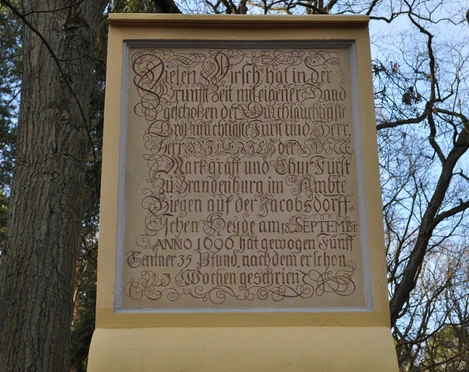 Diesen Hirsch hat in der
Brunfft Zeit mit eigener Hand
geschoßen der Durchlauchtigste
Großmächtigste Fürst und Herr
Herr FRIDERICH der
Marckgraff und Chur Fürst
zu Brandenburg im Ambte
Biegen auf der Jacobsdorff,,
schen Heyde am 18. SEPTEMBr
ANNO 1696 hat gewogen Fünff
Centner 35 Pfund, nachdem er schon
3 Wochen geschrien